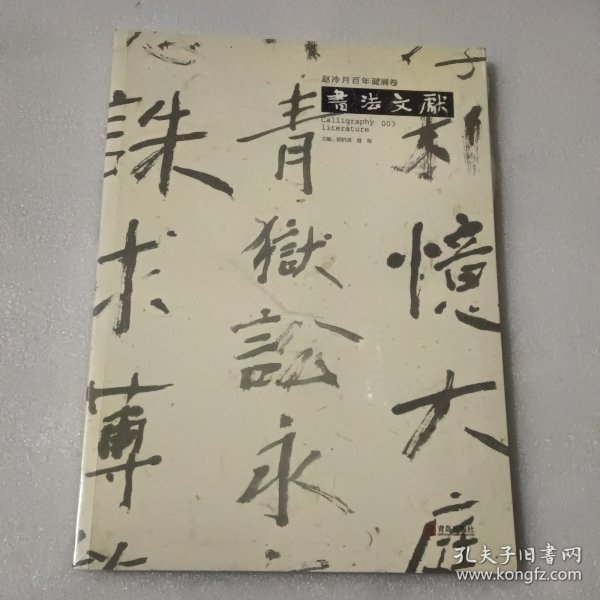 赵冷月百年诞展卷
書法文獻
Calligraphy 003
literature
利憶大庭
青獄訟永
誅求薄
青岛出版社
孔夫子旧书网
www.kongfz.com